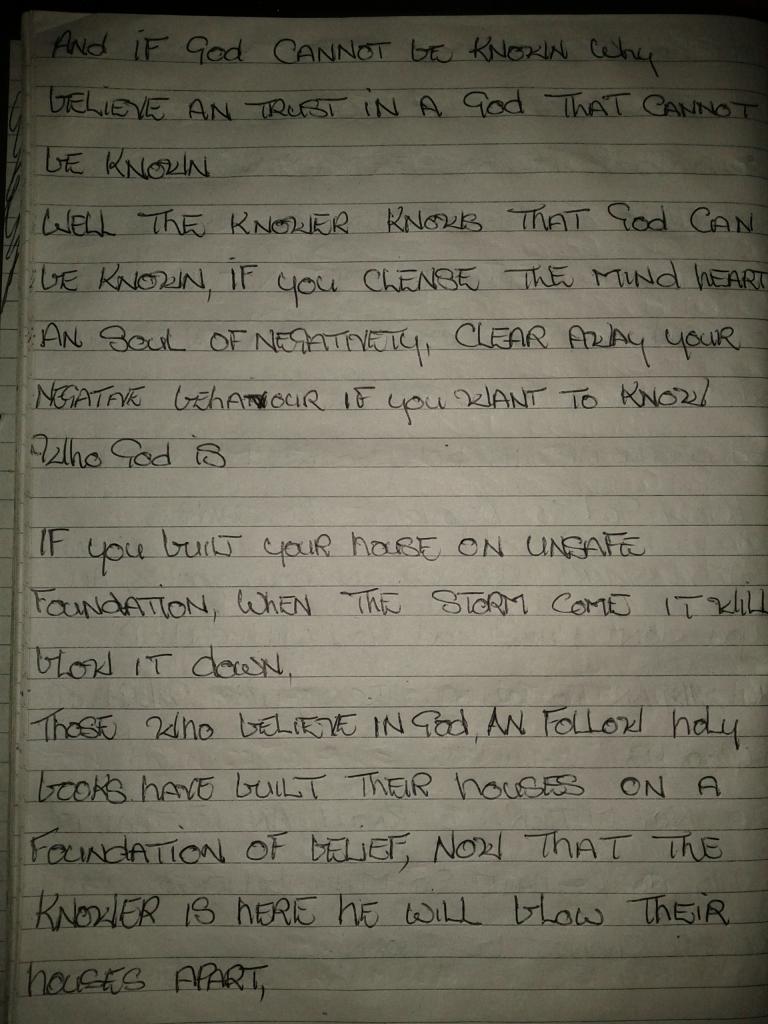 AND IF God CANNOT BE KNOWN Why
BELIEVE AN TRUST IN A God THAT CANNOT
BE KNOWN
WELL THE KNOWER KNOWS THAT God CAN
BE KNOWN, IF you CLENSE THE MIND HEART
AN SOUL OF NEGATIVETY, CLEAR AWAY YOUR
NEGATIVE BEHAVOUR IF you WANT TO KNOW
Who God is
IF you built your HOUSE ON UNSAFE
FOUNDATION, WHEN THE STORM COME IT WILL
blow IT down,
THOSE Who BELIEVE IN God, AN FOLLOW holy
BOOKS HAVE BUILT THEIR HOUSES ON A
FOUNDATION OF BELIEF, NOW THAT THE
KNOWER IS HERE HE WILL blow THEIR
HOUSES APART,